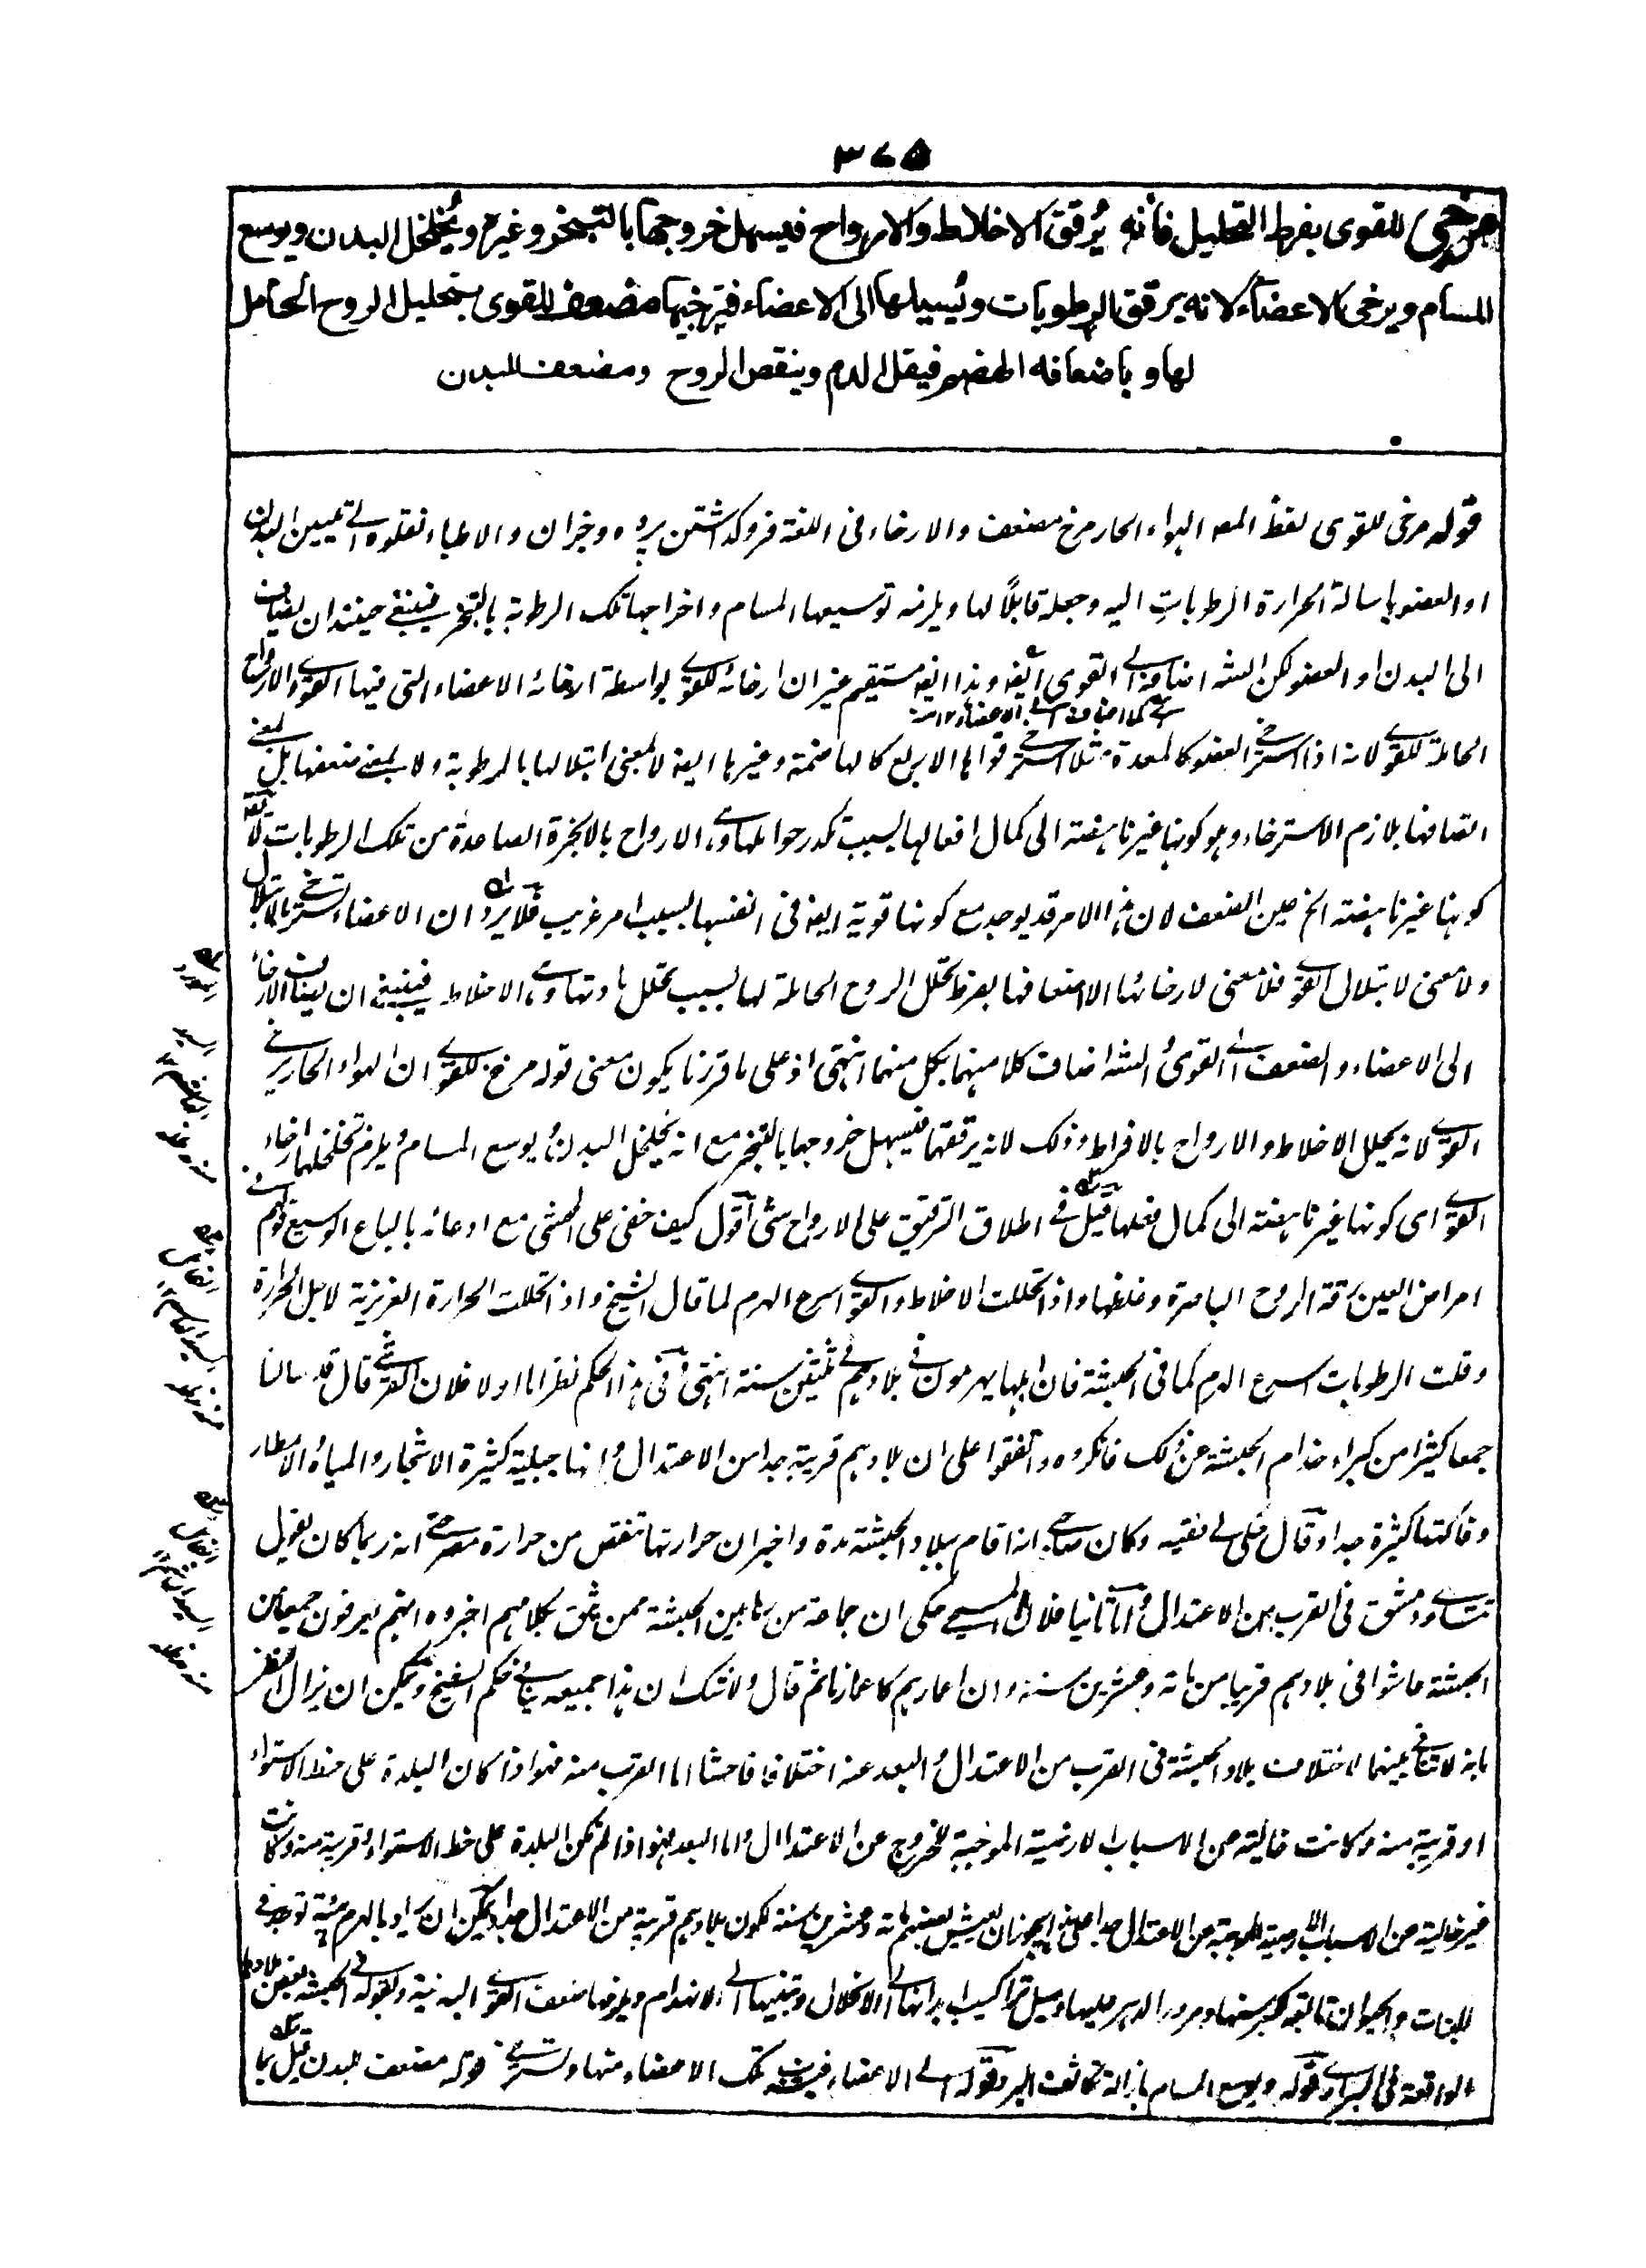 ٣٧٥
مرخي للقوى بفرط التحليل فانه يُرقق الاخلاط والارواح فيسهل خروجها بالتبخر وغيره ويُخلخل البدن ويوسع
المسام ويرخى الاعضاء لانه يرقق الرطوبات ويُسيلها الى الاعضاء فترخيها مضعف للقوى بتحليل الروح الحامل
لها و باضعافه الهضم فيقل الدم وينقص الروح ومضعف للبدن
قوله مرخى للقوى لفظ المص الهواء الحار مرخ مضعف والارخاء فى اللغة فروگذاشتن پرده وجزان والاطباء نقلوه الى تليين البدن
او العضو باسالة الحرارة الرطوبات اليه وجعله قابلاً لها ويلزمه توسيعها المسام واخراجها تلك الرطوبة بالتبخر فينبغى حينئذ ان يضاف
الى البدن او العضو لكن الش اضافه الى القوى ايضه وهذا ايضه مستقيم غيران ارخائه للقوى بواسطة ارخائه الاعضاء التى فيها القوى والارواح
اى كما اضافه الى الاعضاء ١٢ منه
الحاملة للقوى لانه اذا استرخى العضو كالمعدة مثلا استرخى قواها الاربع كالهاضمة وغيرها ايضه لا بمعنى ابتلالها بالرطوبة ولا بمعنى ضعفها بل بمعنى
اتصافها بلازم الاسترخاء وهو كونها غير ناهضة الى كمال افعالها بسبب تكدر حواملها وهى الارواح بالابخرة الصاعدة من تلك الرطوبات
كونها غير ناهضة الخ عين الضعف لان هذا الامر قد يوجد مع كونها قوية ايضه فى انفسها بسبب امر غريب فلا يرد ان الاعضاء تسترخى بالابتلال
ولا معنى لابتلال القوى فلا معنى لارخائها الا اضعافها بفرط تحلل الروح الحاملة لها بسبب تحلل مادتها وهى الاخلاط فينبغى ان يضاف الارخاء
الى الاعضاء والضعف الى القوى والش اضاف كلا منهما بكل منهما انتهى اذ على ما قررنا يكون معنى قوله مرخ للقوى ان الهواء الحار يرخى
القوى لانه يحلل الاخلاط والارواح بالافراط وذلك لانه يرققها فيسهل خروجها بالتبخر مع انه يخلخل البدن ويوسع المسام ويلزم تخلخلها ارخاء
القوى اى كونها غير ناهضة الى كمال فعلها قيل فى اطلاق الترقيق على الارواح شئ اقول كيف خفى على المحشى مع ادعائه بالباع الوسيع قولهم فى
امراض العين رقة الروح الباصرة وغلظها واذا تحللت الاخلاط والقوى اسرع الهرم لما قال الشيخ واذ تحللت الحرارة الغريزية لاجل الحرارة
وقلت الرطوبات اسرع الهرم كما فى الحبشة فان اهلها يهرمون فى بلادهم فى ثلثين سنة انتهى وفى هذا الحكم نظر اما اولا فلان القرشى قال قد سالنا
جمعا كثيرا من كبراء خدام الحبشة عن ذلك فانكروه واتفقوا على ان بلادهم قريبة جدا من الاعتدال وانها جبلية كثيرة الاشجار والمياه والامطار
وفاكهتها كثيرة جدا وقال حكى لى فقيه وكان صاحبى انه اقام ببلاد الحبشة مدة واخبر ان حرارتها تنقص من حرارة مصر حتى انه ربما كان يقول
تساوى دمشق فى القرب من الاعتدال واما ثانيا فلان المسيحى حكى ان جماعة من رهابين الحبشة ممن يثق بكلامهم اخبروه انهم يعرفون جمعا من
الحبشة عاشوا فى بلادهم قريبا من مائة وعشرين سنة وان اعمارهم كاعمارنا ثم قال ولا شك ان هذا جميعه ينافى حكم الشيخ ويمكن ان يزال النظر
بانه لا تنافى بينهما لاختلاف بلاد الحبشة فى القرب من الاعتدال والبعد عنه اختلافا فاحشا اما القرب منه فهو اذا كان البلدة على خط الاستواء
او قريبة منه وكانت خالية عن الاسباب الارضية الموجبة للخروج عن الاعتدال واما البعد فهو اذا لم تكن البلدة على خط الاستواء وقريبة منه وكانت
غير خالية عن الاسباب الارضية الموجبة عن الاعتدال جدا فعلى هذا يجوز ان يعيش بعضهم مائة وعشرين سنة لكون بلادهم قريبة من الاعتدال جدا ويمكن ان يراد بالهرم هيئة توجد فى
النبات والحيوان تابعة لكبر سنها ومرور الدهر عليها وميل تراكيب ابدانها الى الانحلال وبنيتها الى الانهدام ويلزمها ضعف القوى البدنية وبقوله فى الحبشة بعض بلادها
الواقعة فى البرارى وقوله ويوسع المسام بازالة تكاثف البرد وقوله الى الاعضاء تلك الاعضاء منها وتسترخى قوله مضعف للبدن قيل بما